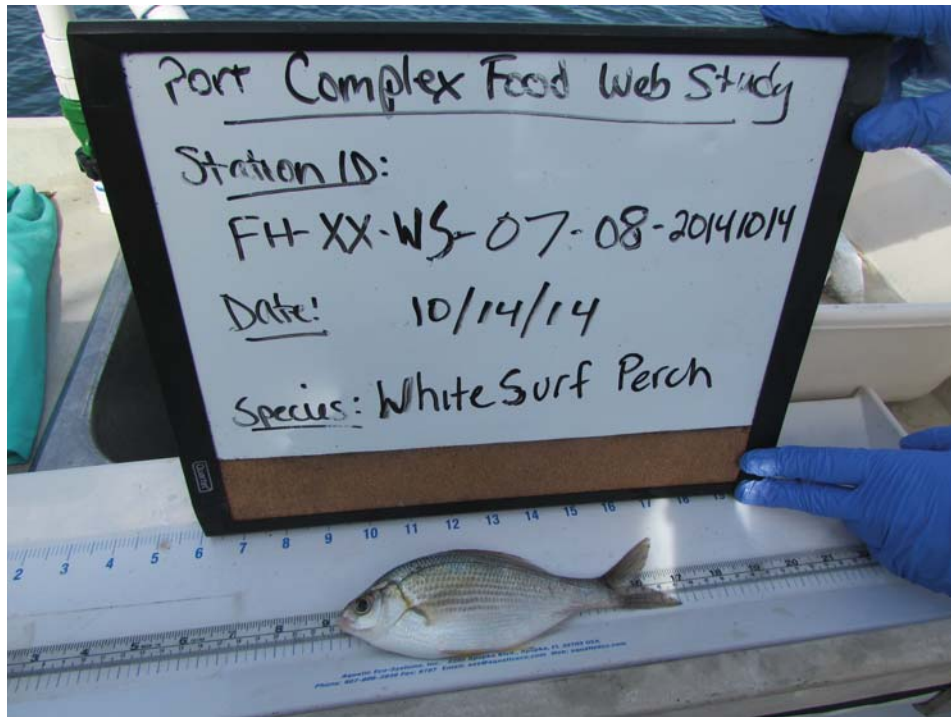 Port Complex Food Web Study
Station ID:
FH-XX-WS-07-08-20141014
Date: 10/14/14
Species: White Surf Perch
Quartet
2 3 4 5 6 7 8 9 10 11 12 13 14 15 16 17 18 19
3 4 5 6 7 8 9 16 17 18 19 20 21
Aquatic Eco-Systems, Inc.